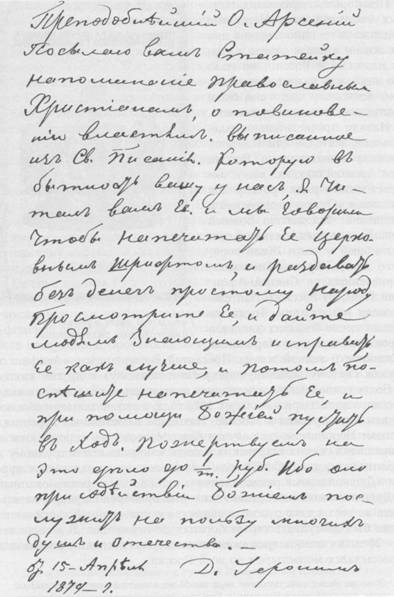 Преподобнѣйшій О. Арсеній
Посылаю вамъ Статейку
напоминаніе православнымъ
Христіанамъ, о повинове-
ніи властямъ. выписанное
изъ Св. Писанія. которую въ
бытность вашу у насъ, Я чи-
талъ вамъ Ее. и мы говорили
чтобы напечатать Ее церко-
внымъ шрифтомъ, и раздавать
безъ денегъ простому народу
Просмотрите Ее, и дайте
людямъ знающимъ исправить
Ее какъ лучше, и потомъ по-
спѣшите напечатать Ее, и
при помощи Божіей пустить
въ ходъ. Пожертвуемъ на
это дѣло до руб. Ибо оно
при содѣйствіи Божіемъ пос-
лужитъ на пользу многихъ
душъ и отечества. —
15-Апрѣля Д. Іеронимъ
1879-г.